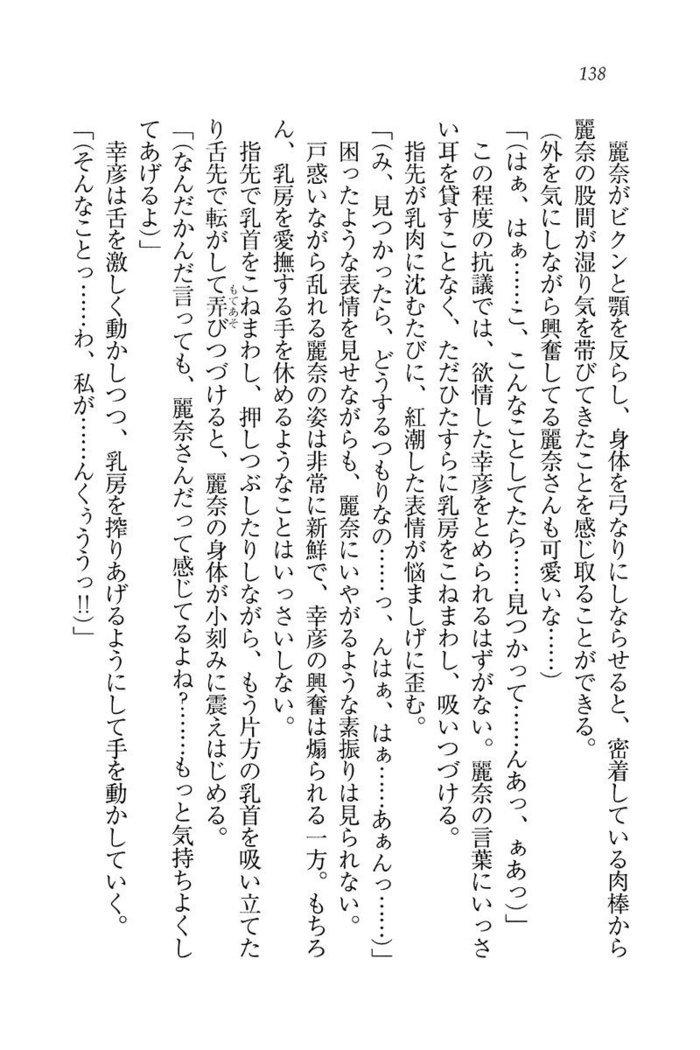 138
麗奈がビクンと顎を反らし、身体を弓なりにしならせると、密着している肉棒から
麗奈の股間が湿り気を帯びてきたことを感じ取ることができる。
(外を気にしながら興奮してる麗奈さんも可愛いな……)
「(はぁ、はぁ……こ、こんなことしてたら……見つかって……んあっ、ぁあっ)」
この程度の抗議では、欲情した幸彦をとめられるはずがない。麗奈の言葉にいっさ
い耳を貸すことなく、ただひたすらに乳房をこねまわし、吸いつづける。
指先が乳肉に沈むたびに、紅潮した表情が悩ましげに歪む。
「(み、見つかったら、どうするつもりなの……っ、んはぁ、はぁ……あぁんっ……)」
困ったような表情を見せながらも、麗奈にいやがるような素振りは見られない。
戸惑いながら乱れる麗奈の姿は非常に新鮮で、幸彦の興奮は煽られる一方。もちろ
ん、乳房を愛撫する手を休めるようなことはいっさいしない。
指先で乳首をこねまわし、押しつぶしたりしながら、もう片方の乳首を吸い立てた
り舌先で転がして弄びつづけると、麗奈の身体が小刻みに震えはじめる。
もてあそ
「(なんだかんだ言っても、麗奈さんだって感じてるよね?……もっと気持ちよくし
てあげるよ)」
幸彦は舌を激しく動かしつつ、乳房を搾りあげるようにして手を動かしていく。
「(そんなことっ……わ、私が……んくぅううっ!!)」